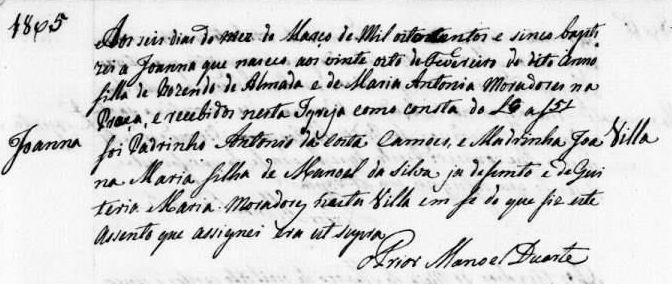 1805
Aos seis dias do mez de Março de Mil oito centos e sinco bapti
zei a Joanna que nasceo aos vinte oito de Fevereiro do dito Anno
filha de Rozendo de Almada e de Maria Antonia Moradores na
Praça, e recebidos nesta Igreja como consta do L6 a f51
Joanna
foi Padrinho Antonio da Costa Camões, e Madrinha Joa Villa
na Maria filha de Manoel da Silva ja defunto e de Qui
teria Maria Moradores nesta Villa em fe do que fiz este
Assento que assignei era ut supra
Prior Manoel Duarte